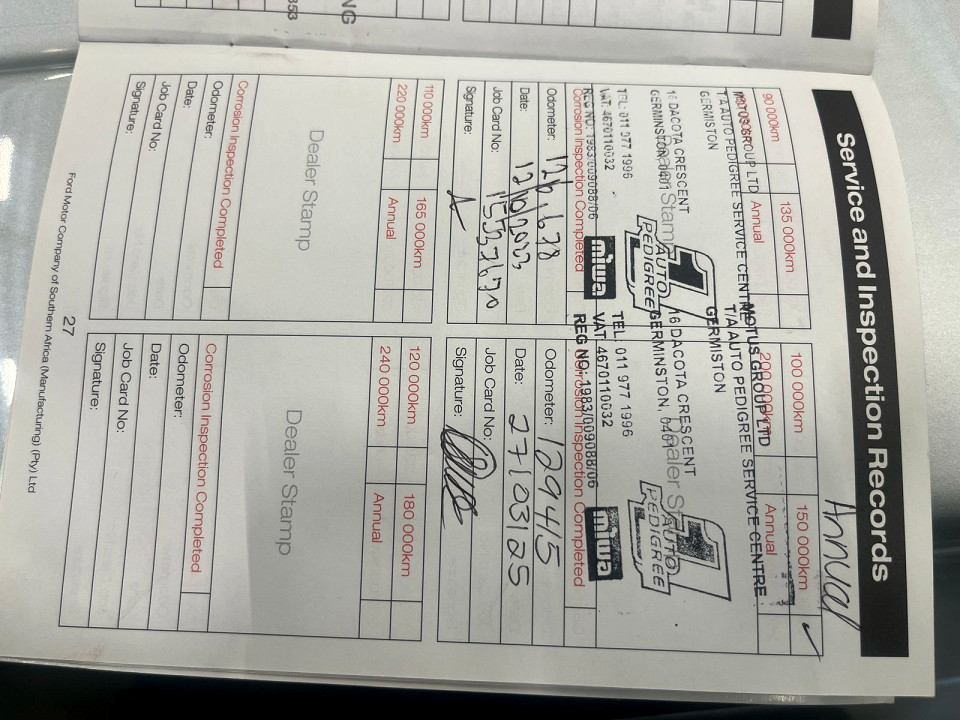 NG
353
Service and Inspection Records
Annual
90 000km
135 000km
Annual
MOTUS GROUP LTD
T/A AUTO PEDIGREE SERVICE CENTRE
GERMISTON
1
AUTO
PEDIGREE
16 DACOTA CRESCENT
GERMINSTON, 0401
Dealer Stamp
TEL: 011 977 1996
VAT: 4670110032
REG NO: 1983/009088/06
miwa
Corrosion Inspection Completed
Odometer:
Date:
Job Card No:
Signature:
100 000km
150 000km
200 000km
Annual
MOTUS GROUP LTD
T/A AUTO PEDIGREE SERVICE CENTRE
GERMISTON
1
AUTO
PEDIGREE
16 DACOTA CRESCENT
GERMINSTON, 0401
Dealer Stamp
TEL: 011 977 1996
VAT: 4670110032
REG NO: 1983/009088/06
miwa
Corrosion Inspection Completed
Odometer: 129415
Date: 27/03/25
Job Card No:
Signature:
110 000km
165 000km
220 000km
Annual
Dealer Stamp
Corrosion Inspection Completed
Odometer:
Date:
Job Card No:
Signature:
120 000km
180 000km
240 000km
Annual
Dealer Stamp
Corrosion Inspection Completed
Odometer:
Date:
Job Card No:
Signature:
27
Ford Motor Company of Southern Africa (Manufacturing) (Pty) Ltd